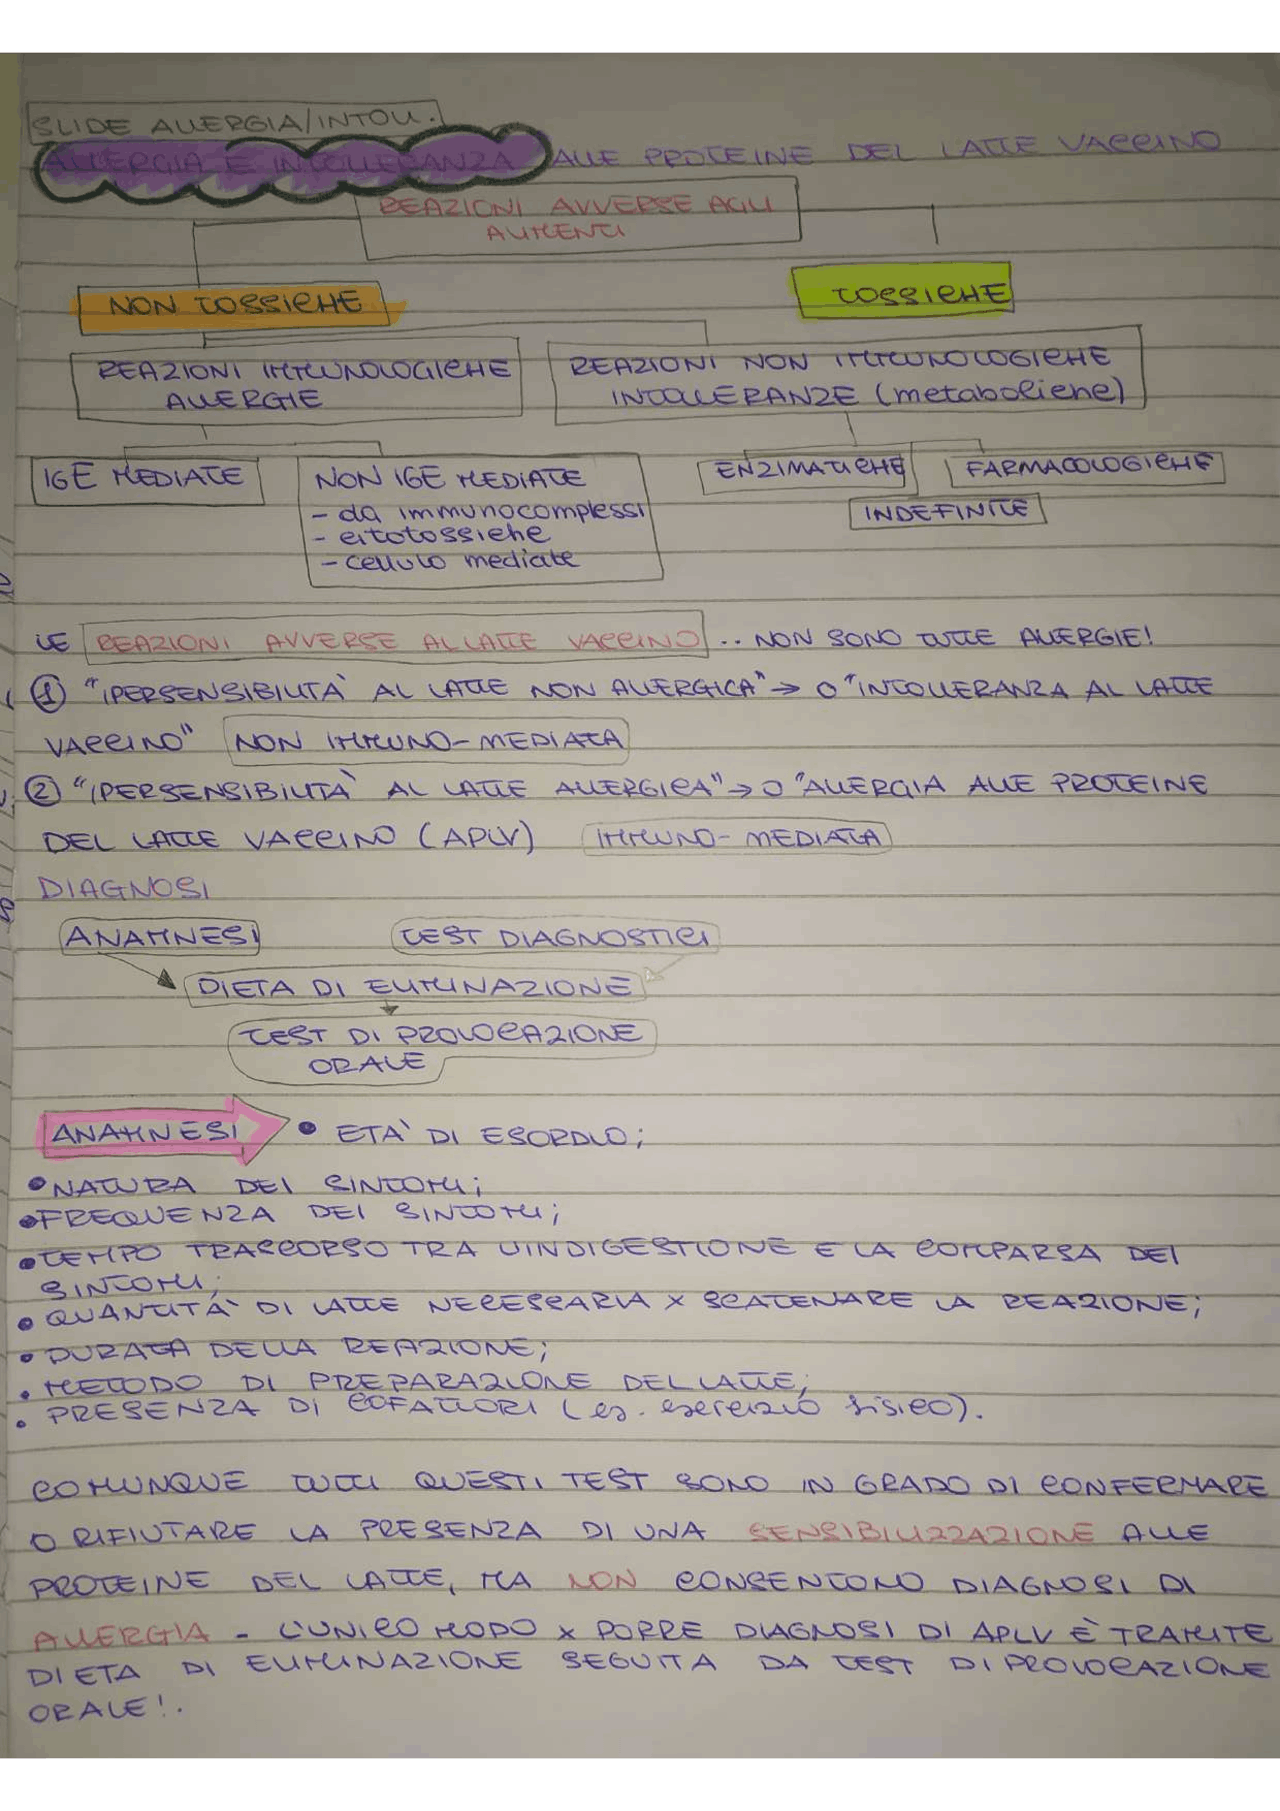 SLIDE ALLERGIA/INTOLL.
ALLERGIA E INTOLLERANZA ALLE PROTEINE DEL LATTE VACCINO
REAZIONI AVVERSE AGLI
ALIMENTI
NON TOSSICHE
TOSSICHE
REAZIONI IMMUNOLOGICHE
ALLERGIE
REAZIONI NON IMMUNOLOGICHE
INTOLLERANZE (metaboliche)
IGE MEDIATE
NON IGE MEDIATE
- da immunocomplessi
- citotossiche
- cellulo mediate
ENZIMATICHE
FARMACOLOGICHE
INDEFINITE
LE REAZIONI AVVERSE AL LATTE VACCINO .. NON SONO TUTTE ALLERGIE!
① "IPERSENSIBILITÀ AL LATTE NON ALLERGICA" → O "INTOLLERANZA AL LATTE
VACCINO" NON IMMUNO-MEDIATA
② "IPERSENSIBILITÀ AL LATTE ALLERGICA" → O "ALLERGIA ALLE PROTEINE
DEL LATTE VACCINO (APLV) IMMUNO-MEDIATA
DIAGNOSI
ANAMNESI
TEST DIAGNOSTICI
DIETA DI ELIMINAZIONE
TEST DI PROVOCAZIONE
ORALE
ANAMNESI • ETÀ DI ESORDIO;
• NATURA DEI SINTOMI;
• FREQUENZA DEI SINTOMI;
• TEMPO TRASCORSO TRA L'INDIGESTIONE E LA COMPARSA DEI
SINTOMI;
• QUANTITÀ DI LATTE NECESSARIA x SCATENARE LA REAZIONE;
• DURATA DELLA REAZIONE;
• METODO DI PREPARAZIONE DEL LATTE;
• PRESENZA DI COFATTORI (es. esercizio fisico).
COMUNQUE TUTTI QUESTI TEST SONO IN GRADO DI CONFERMARE
O RIFIUTARE LA PRESENZA DI UNA SENSIBILIZZAZIONE ALLE
PROTEINE DEL LATTE, MA NON CONSENTONO DIAGNOSI DI
ALLERGIA - L'UNICO MODO x PORRE DIAGNOSI DI APLV È TRAMITE
DIETA DI ELIMINAZIONE SEGUITA DA TEST DI PROVOCAZIONE
ORALE!.